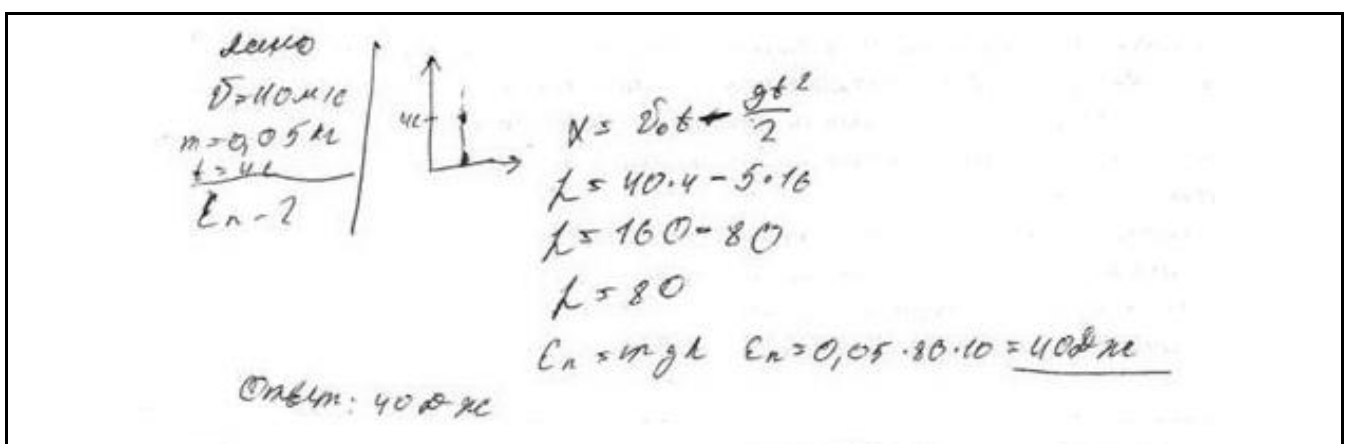 Дано
υ=40м/с
m=0,05кг
t=4с
Eп-?
4с
x = υ₀t - gt²/2
h = 40·4-5·16
h = 160-80
h = 80
Eп = mgh Eп = 0,05·80·10 = 40Дж
Ответ: 40Дж